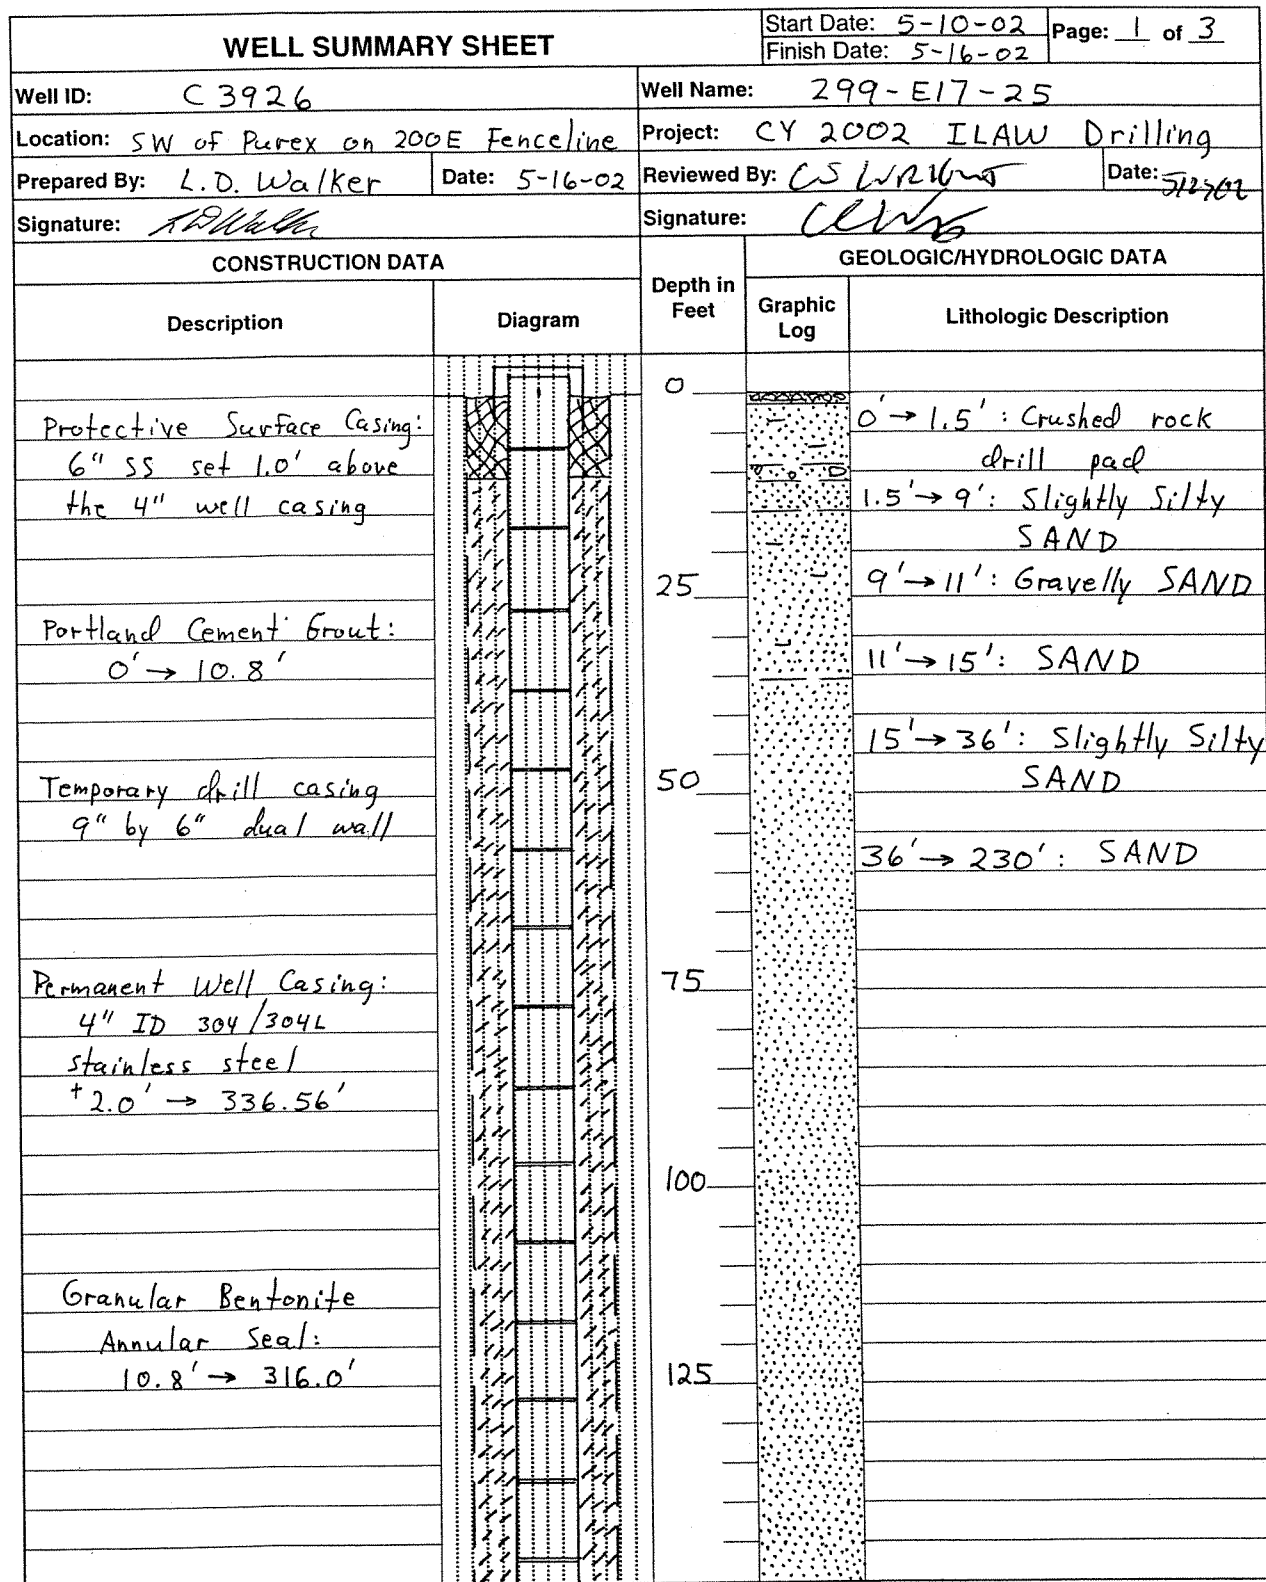 WELL SUMMARY SHEET
Start Date: 5-10-02
Finish Date: 5-16-02
Page: 1 of 3
Well ID: C3926
Well Name: 299-E17-25
Location: SW of Purex on 200E Fenceline
Project: CY 2002 ILAW Drilling
Prepared By: L.D. Walker
Date: 5-16-02
Reviewed By: CS Wright
Date:
Signature: LD Walker
Signature:
CONSTRUCTION DATA
Depth in
Feet
GEOLOGIC/HYDROLOGIC DATA
Description
Diagram
Graphic
Log
Lithologic Description
Protective Surface Casing:
6" SS set 1.0' above
the 4" well casing
Portland Cement Grout:
0' → 10.8'
Temporary drill casing
9" by 6" dual wall
Permanent Well Casing:
4" ID 304/304L
stainless steel
+2.0' → 336.56'
Granular Bentonite
Annular Seal:
10.8' → 316.0'
0
25
50
75
100
125
0' → 1.5' : Crushed rock
drill pad
1.5' → 9' : Slightly Silty
SAND
9' → 11' : Gravelly SAND
11' → 15' : SAND
15' → 36' : Slightly Silty
SAND
36' → 230' : SAND